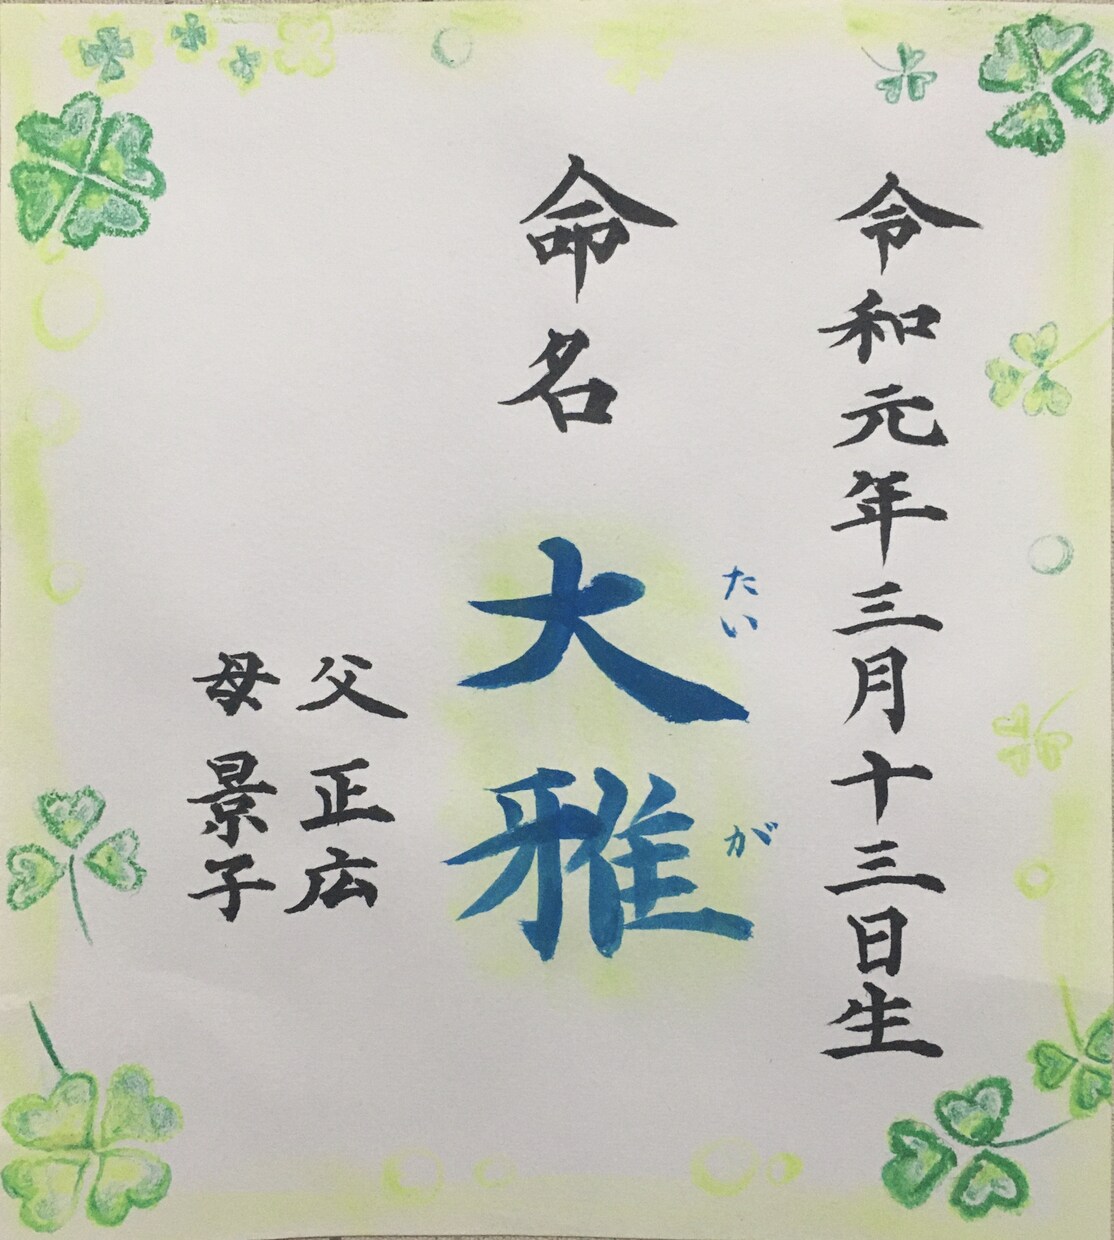 令和元年三月十三日生
命名 大雅
たいが
父 正広
母 景子